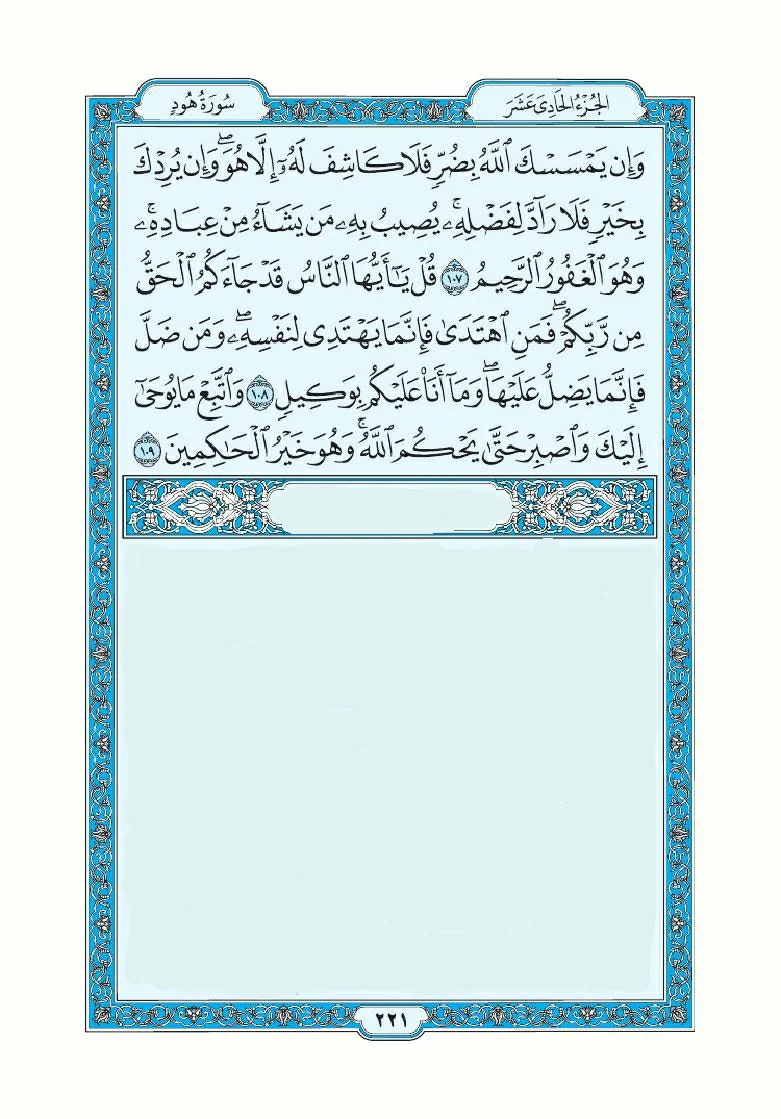 الجُزْءُ الحَادِىَ عَشَرَ
سُورَةُ هُودٍ
وَإِن يَمْسَسْكَ ٱللَّهُ بِضُرٍّ فَلَا كَاشِفَ لَهُۥٓ إِلَّا هُوَۖ وَإِن يُرِدْكَ
بِخَيْرٍ فَلَا رَآدَّ لِفَضْلِهِۦۚ يُصِيبُ بِهِۦ مَن يَشَآءُ مِنْ عِبَادِهِۦۚ
وَهُوَ ٱلْغَفُورُ ٱلرَّحِيمُ ١٠٧ قُلْ يَـٰٓأَيُّهَا ٱلنَّاسُ قَدْ جَآءَكُمُ ٱلْحَقُّ
مِن رَّبِّكُمْۖ فَمَنِ ٱهْتَدَىٰ فَإِنَّمَا يَهْتَدِى لِنَفْسِهِۦۖ وَمَن ضَلَّ
فَإِنَّمَا يَضِلُّ عَلَيْهَاۖ وَمَآ أَنَا۠ عَلَيْكُم بِوَكِيلٍ ١٠٨ وَٱتَّبِعْ مَا يُوحَىٰٓ
إِلَيْكَ وَٱصْبِرْ حَتَّىٰ يَحْكُمَ ٱللَّهُۚ وَهُوَ خَيْرُ ٱلْحَـٰكِمِينَ ١٠٩
٢٢١